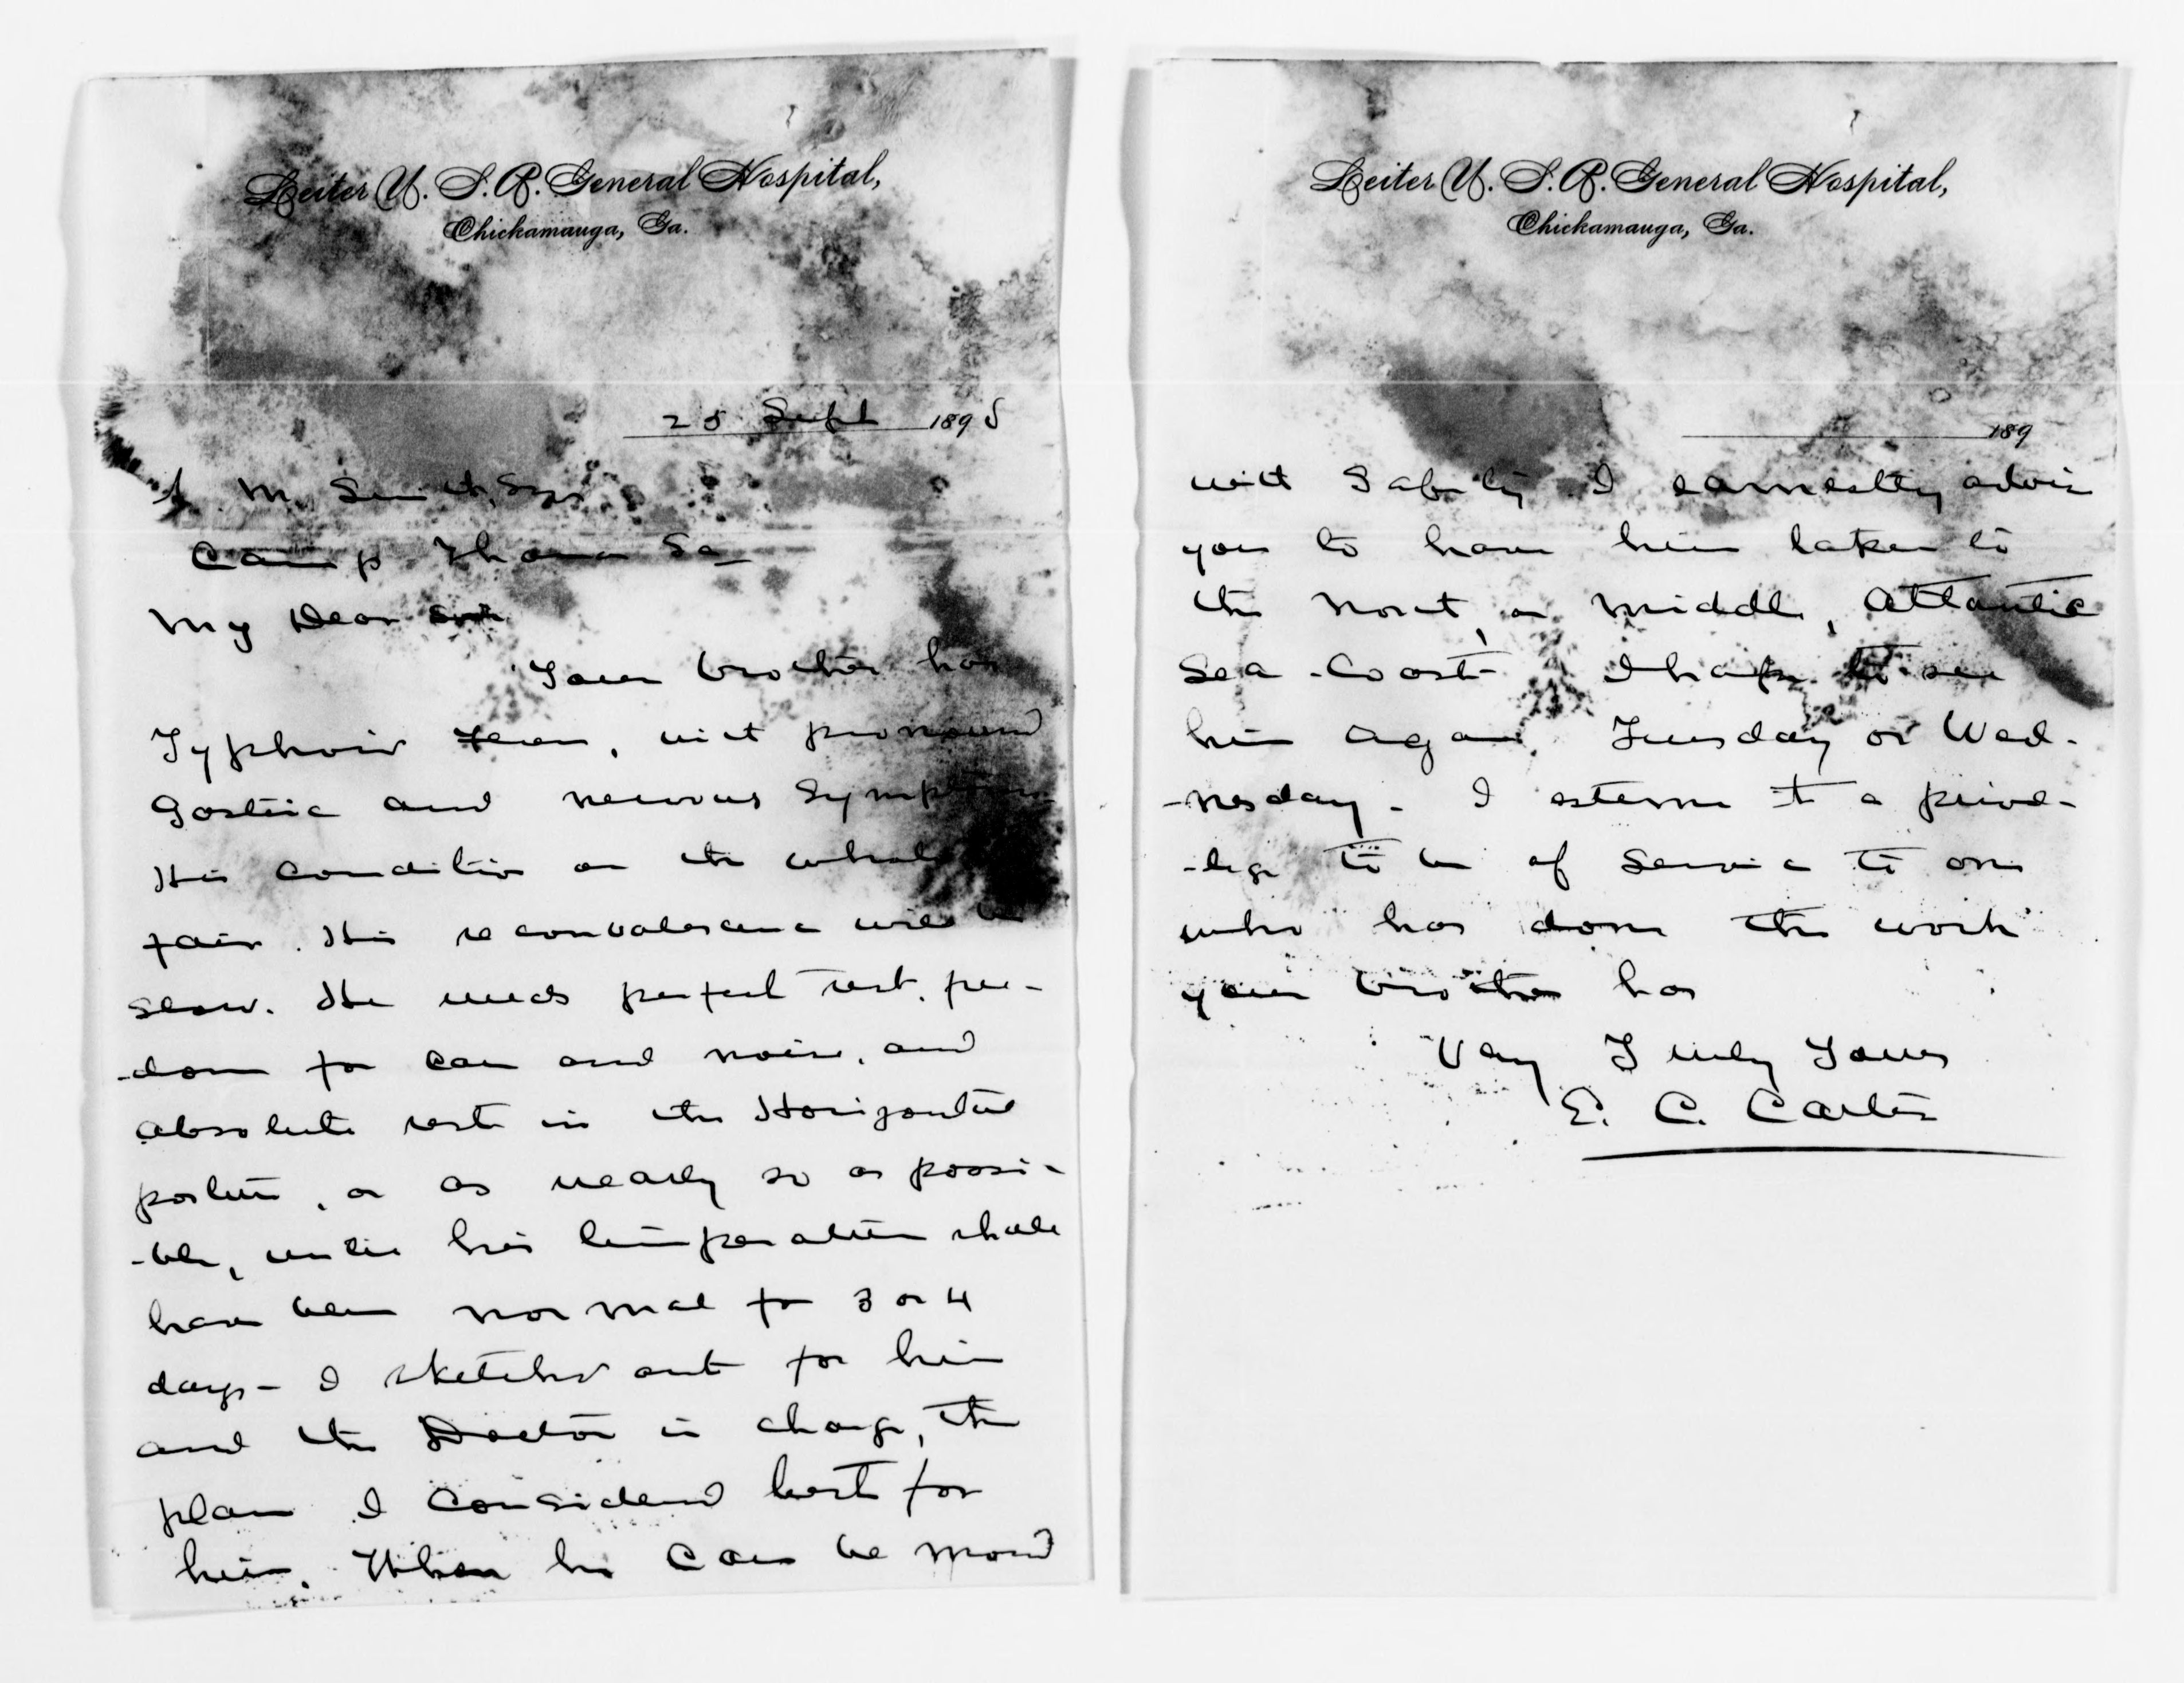 Leiter U. S. A. General Hospital,
Chickamauga, Ga.
25 Sept 1898
M. Smith, Esqr
Camp Thomas Ga
My Dear Sir
Your brother has
Typhoid fever, with pronounced
Gastric and nervous symptoms
His condition on the whole
fair. His reconvalescence will be
slow. He needs perfect rest, free-
-dom from care and noise, and
absolute rest in the Horizontal
posture, or as nearly so as possi-
-ble, until his temperature shall
have been normal for 3 or 4
days - I sketched out for him
and the Doctor in charge, the
plan I considered best for
him. When he can be moved
Leiter U. S. A. General Hospital,
Chickamauga, Ga.
189
with safety I earnestly advise
you to have him taken to
the North, or Middle, Atlantic
Sea-Coast. I hope to see
him again Tuesday or Wed-
-nesday - I esteem it a privi-
-lege to be of service to one
who has done the work
your brother has
Very Truly Yours
E. C. Carter